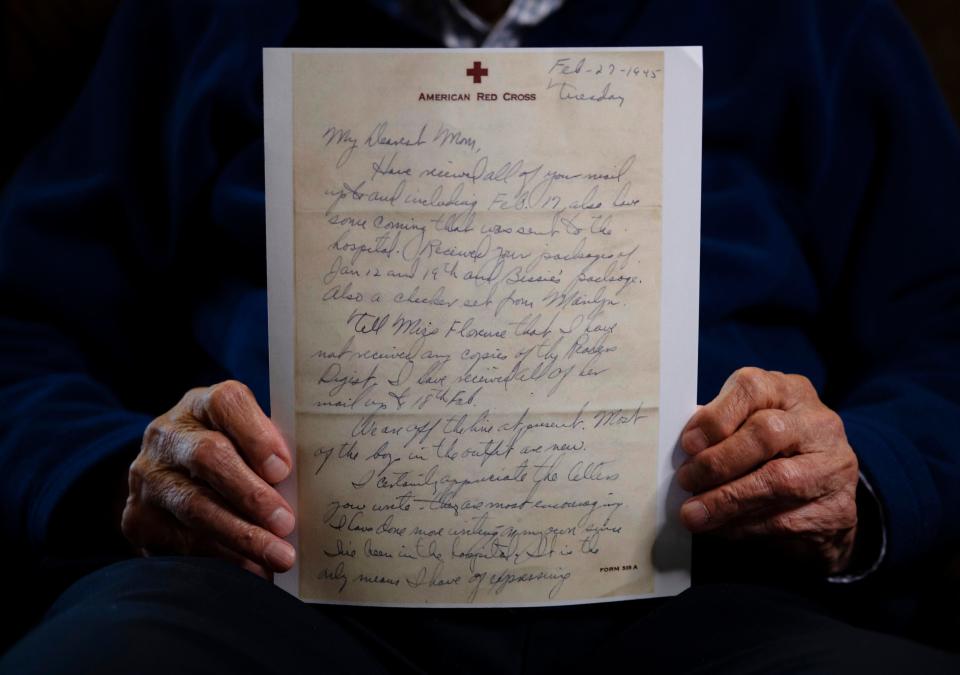 Feb-27-1945
Tuesday
AMERICAN RED CROSS
My Dearest Mom,
Have received all of your mail
up to and including Feb. 17, also have
some coming that was sent to the
hospital. Received your packages of
Jan 12 and 19th and Bessie's package.
Also a checker set from Marilyn.
Tell Miss Florence that I have
not received any copies of the Readers
Digist. I have received all of her
mail up to 18th Feb.
We are off the line at present. Most
of the boys in the outfit are new.
I certainly appreciate the letters
you write - they are most encouraging
I have done more writing since
I've been in the hospital. It is the
only means I have of expressing
FORM 539 A